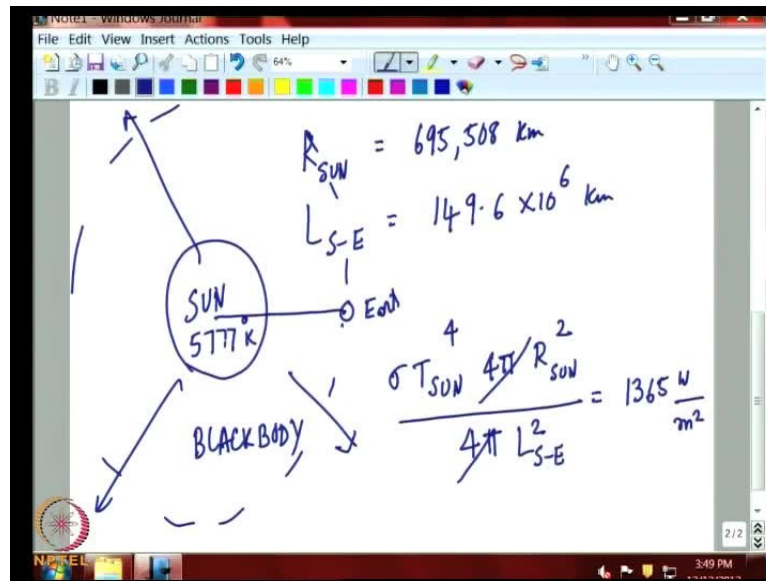 Note1 - Windows Journal
File Edit View Insert Actions Tools Help
64%
B I
R_SUN = 695,508 Km
L_S-E = 149.6 × 10^6 Km
SUN
5777°K
Eart
BLACKBODY
σ T_SUN^4 4π R_SUN^2 / 4π L_S-E^2 = 1365 W/m^2
2/2
NPTEL
3:49 PM